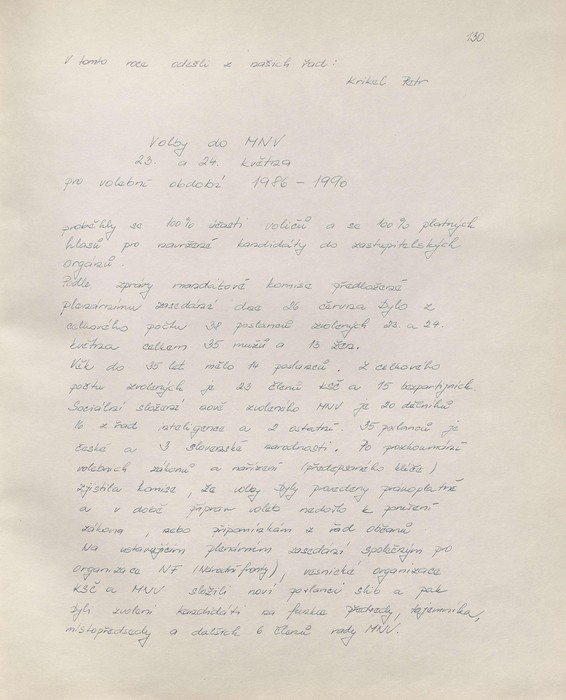 130.
V tomto roce odešli z našich řad:
Krikel Petr
Volby do MNV
23. a 24. května
pro volební období 1986 - 1990
proběhly za 100% účasti voličů a za 100% platných
hlasů pro navržené kandidáty do zastupitelských
orgánů.
Podle zprávy mandátové komise předložené
plenárnímu zasedání dne 26. června bylo z
celkového počtu 38 poslanců zvolených 23. a 24.
května celkem 35 mužů a 13 žen.
Věk do 35 let mělo 14 poslanců. Z celkového
počtu zvolených je 23 členů KSČ a 15 bezpartijních
Sociální složení nově zvoleného MNV je 20 dělníků
16 z řad inteligence a 2 ostatní. 35 poslanců je
české a 3 slovenské národnosti. Po prozkoumání
volebních zákonů a nařízení (předepsaného klíče)
zjistila komise, že volby byly provedeny právoplatně
a v době příprav voleb nedošlo k porušení
zákona, nebo připomínkám z řad občanů
Na ustavujícím plenárním zasedání společným pro
organizace NF (Národní fronty), vesnické organizace
KSČ a MNV složili noví poslanci slib a pak
byli zvoleni kandidáti na funkce předsedy, tajemníka,
místopředsedy a dalších 6 členů rady MNV.